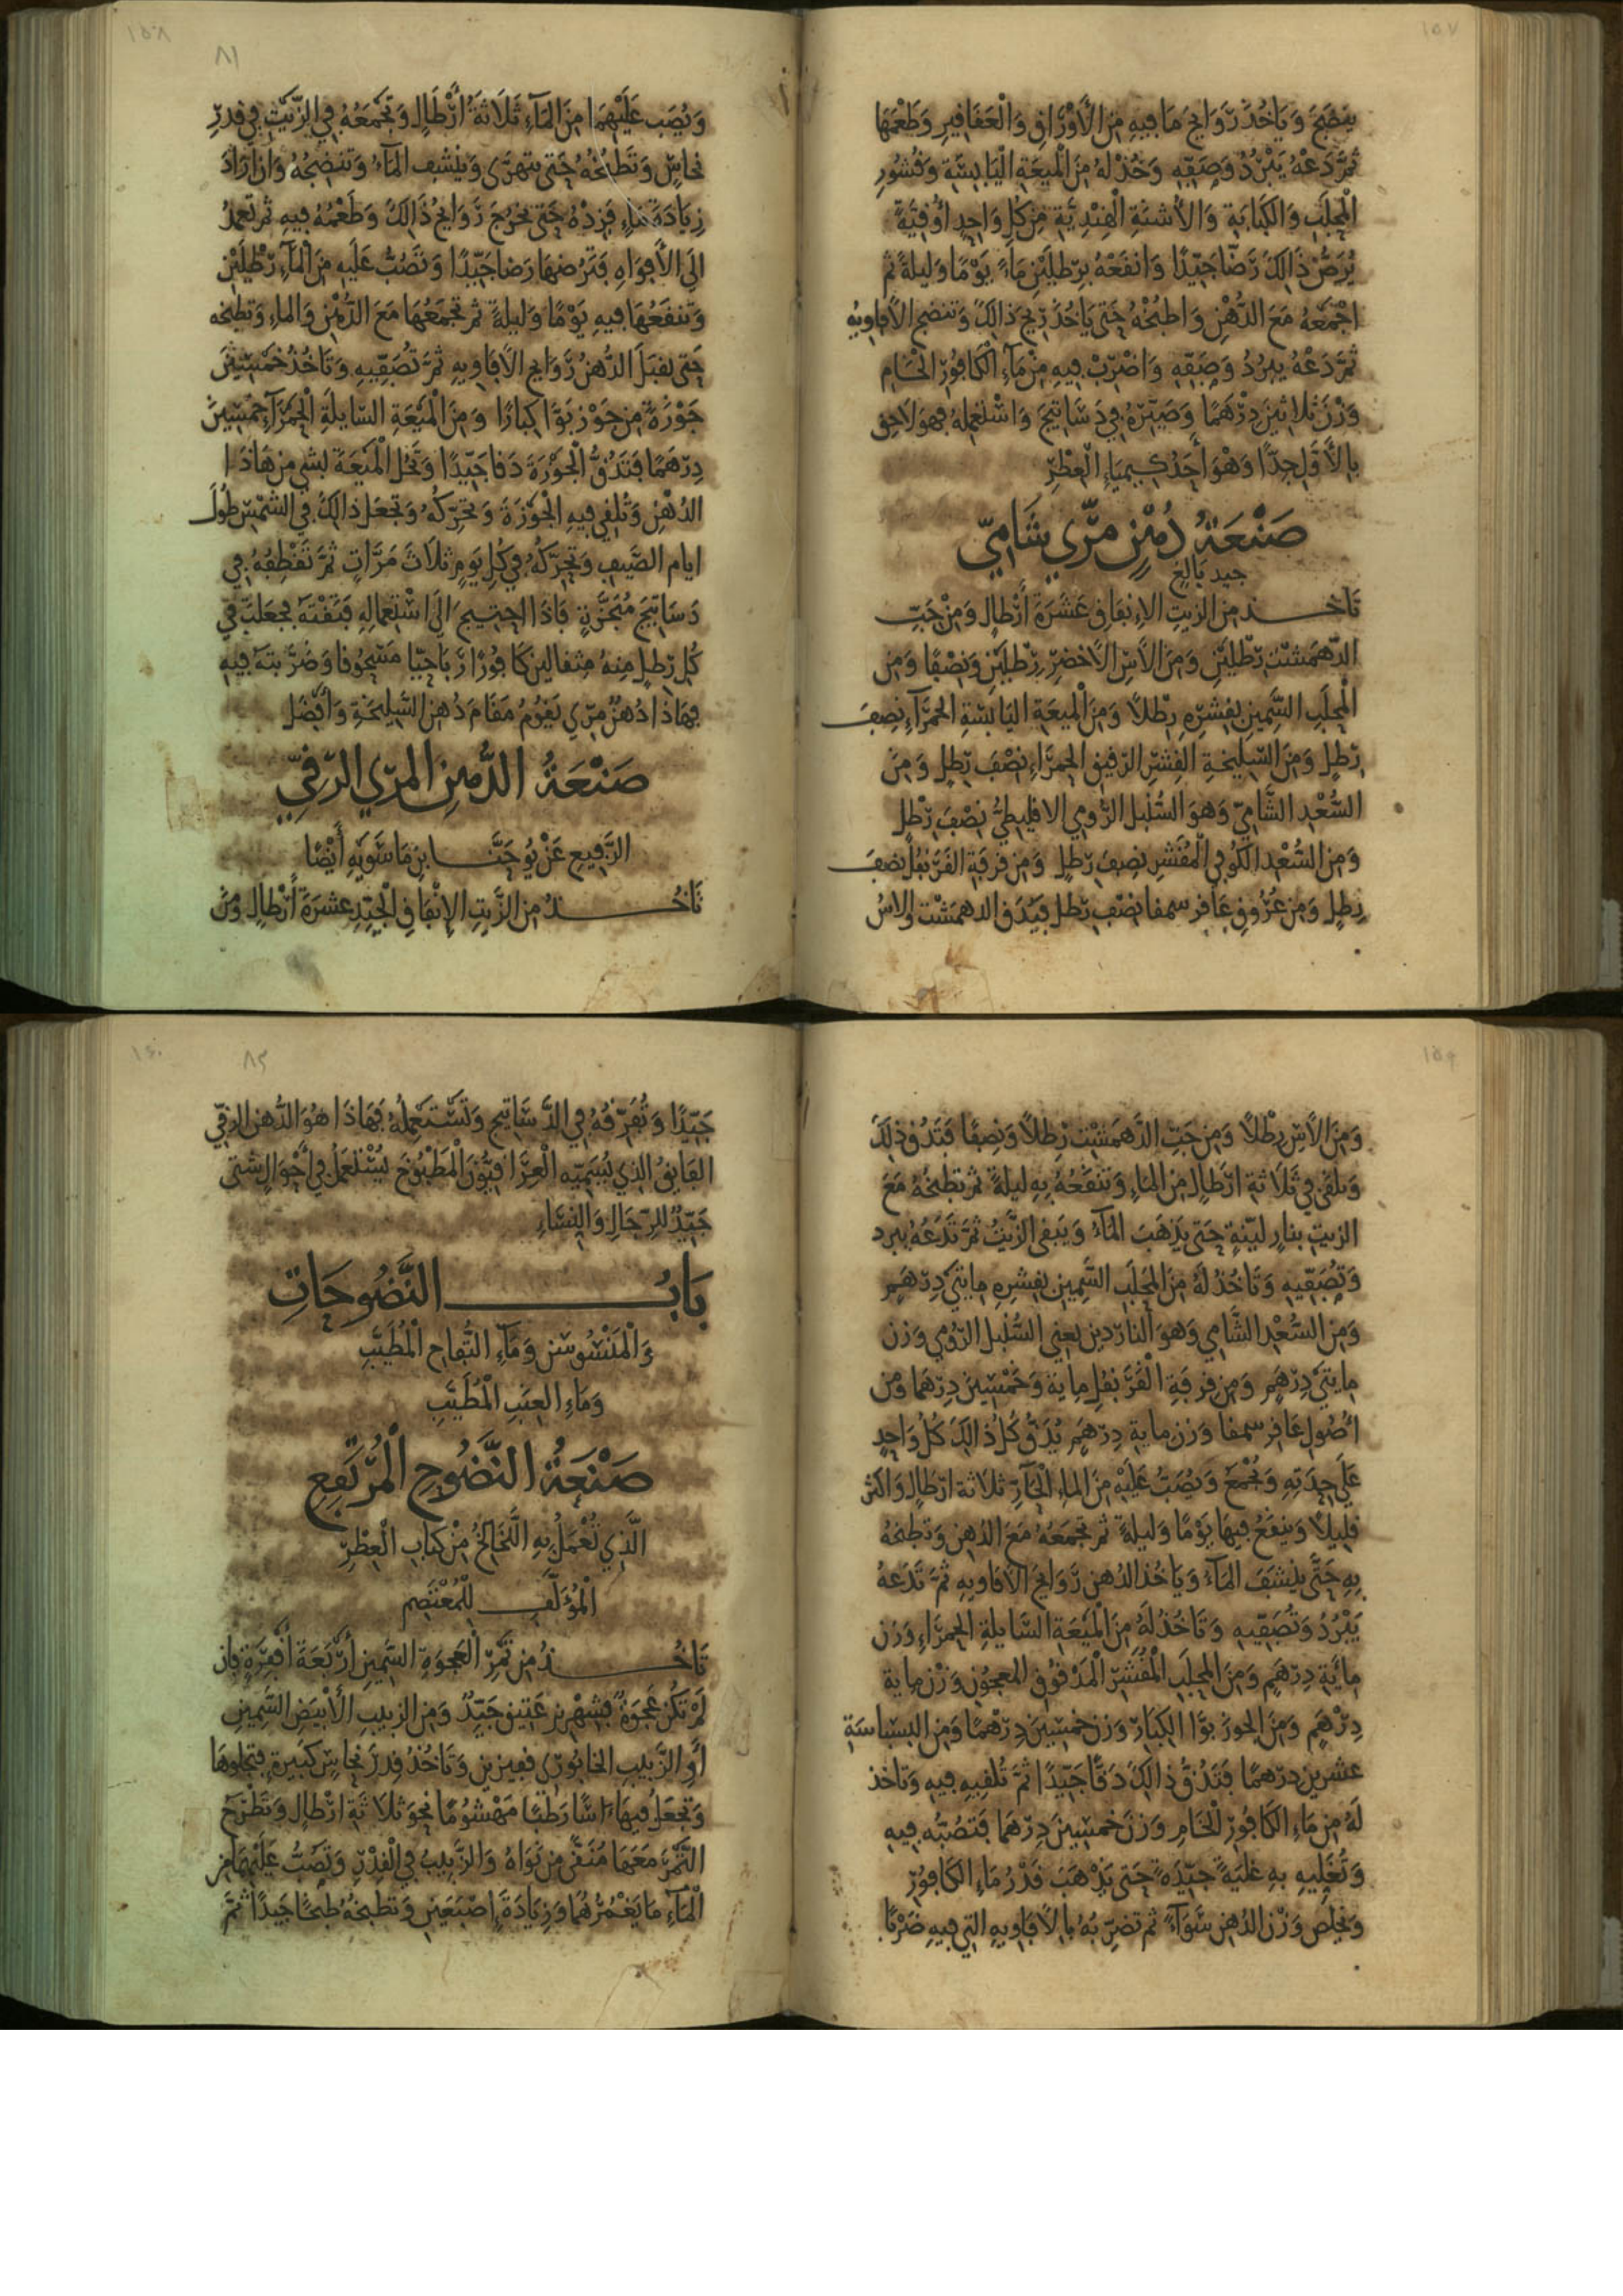 ١٥٧
ينضج وياخذ روايح ما فيه من الأوراق والعقاقير وطعمها
ثم دعه يبرد وصفه وخذ له من الميعة اليابسة وقشور
المحلب والكبابة والأشنة الهندية من كل واحد أوقية
يرض ذالك رضا جيدا وانقعه برطلين ماء يوما وليلة ثم
اجمعه مع الدهن واطبخه حتى ياخذ ريح ذالك وتنضج الافاويه
ثم دعه يبرد وصفه واضرب فيه من ماء الكافور الخام
وزن ثلاثين درهما وصيره في دساتيج واستعمله فهو لاحق
بالأول جدا وهو أحد كيمياء العطر
صنعة دهن مري شامي
جيد بالغ
تاخذ من الزيت الإنفاق عشرة أرطال ومن حب
الدهمشت رطلين ومن الاس الاخضر رطلين ونصفا ومن
المحلب السمين بقشره رطلا ومن الميعة اليابسة الحمراء نصف
رطل ومن السليخة القشر الرقيق الحمراء نصف رطل ومن
السعد الشامي وهو السنبل الرومي الاقليطي نصف رطل
ومن السعد الكوفي المقشر نصف رطل ومن قرفة القرنفل نصف
رطل ومن عروق عاقر سمفا نصف رطل فيدق الدهمشت والاس
١٥٨
٨١
ويصب عليهما من الماء ثلاثة أرطال وتجمعه في الزيت في قدر
نحاس وتطبخه حتى يتهرى وينشف الماء وتنضجه وان اراد
زيادة ماء فزده حتى تخرج روايح ذالك وطعمه فيه ثم تعمد
الى الأفواه فترضها رضا جيدا وتصب عليه من الماء رطلين
وتنقعها فيه يوما وليلة ثم تجمعها مع الدهن والماء وتطبخه
حتى يقبل الدهن روايح الافاويه ثم تصفيه وتاخذ خمسين
جوزة من جوز بوا كبارا ومن الميعة السايلة الحمراء خمسين
درهما فتدق الجوزة دقا جيدا وتحل الميعة بشي من هاذا
الدهن وتلقي فيه الجوزة وتحركه وتجعل ذالك في الشمس طول
ايام الصيف وتحركه في كل يوم ثلاث مرات ثم تقطفه في
دساتيج مبخرة فاذا احتيج الى استعماله فتقته فجعلت في
كل رطل منه مثقالين كافورا رباحيا مسحوقا وضربته فيه
فهاذا دهن مري يقوم مقام دهن السليخة وأفضل
صنعة الدهن المري الرقي
الرفيع عن يوحنا بن ماسويه أيضا
تاخذ من الزيت الإنفاق الجيد عشرة أرطال ومن
١٥٩
ومن الاس رطلا ومن حب الدهمشت رطلا ونصفا فتدق ذلك
ويلقى في ثلاثة ارطال من الماء وتنقعه به ليلة ثم تطبخه مع
الزيت بنار لينة حتى يذهب الماء ويبقى الزيت ثم تدعه يبرد
وتصفيه وتاخذ له من المحلب السمين بقشره مايتي درهم
ومن السعد الشامي وهو الناردين يعني السنبل الرومي وزن
مايتي درهم ومن قرفة القرنفل ماية وخمسين درهما ومن
اصول عاقر سمفا وزن ماية درهم يدق كل ذالك كل واحد
على حدته وتجمع ويصب عليه من الماء الحار ثلاثة ارطال واكثر
قليلا وينقع فيها يوما وليلة ثم تجمعه مع الدهن وتطبخه
به حتى ينشف الماء وياخذ الدهن روايح الافاويه ثم تدعه
يبرد وتصفيه وتاخذ له من الميعة السايلة الحمراء وزن
ماية درهم ومن المحلب المقشر المدقوق المعجون وزن ماية
درهم ومن الجوز بوا الكبار وزن خمسين درهما ومن البسباسة
عشرين درهما فتدق ذالك دقا جيدا ثم تلقيه فيه وتاخذ
له من ماء الكافور الخام وزن خمسين درهما فتصبه فيه
وتغليه به غلية جيدة حتى يذهب قدر ماء الكافور
ويخلص وزن الدهن سواء ثم تضربه بالافاويه التي فيه ضربا
١٦٠
٨٢
جيدا وتفرقه في الدساتيج وتستعمله فهاذا هو الدهن الرقي
الفايق الذي يسميه العزافيون المطبوخ يستعمل في أحوال شتى
جيد للرجال والنساء
باب النضوحات
والمنسوسن وماء التفاح المطيب
وماء العنب المطيب
صنعة النضوح المرتفع
الذي تعمل به اللخالخ من كتاب العطر
المؤلف للمعتصم
تاخذ من تمر العجوة السمين أربعة أقفزة فإن
لم تكن عجوة فشهريز عتيق جيد ومن الزبيب الأبيض السمين
أو الزبيب الخابوري قفيزين وتاخذ قدر نحاس كبيرة فتجلوها
وتجعل فيها اسا رطبا مهشوما نحو ثلاثة ارطال وتطرح
التمر معها منقى من نواه والزبيب في القدر وتصب عليهما من
الماء ما يغمرهما وزيادة إصبعين وتطبخه طبخا جيدا ثم